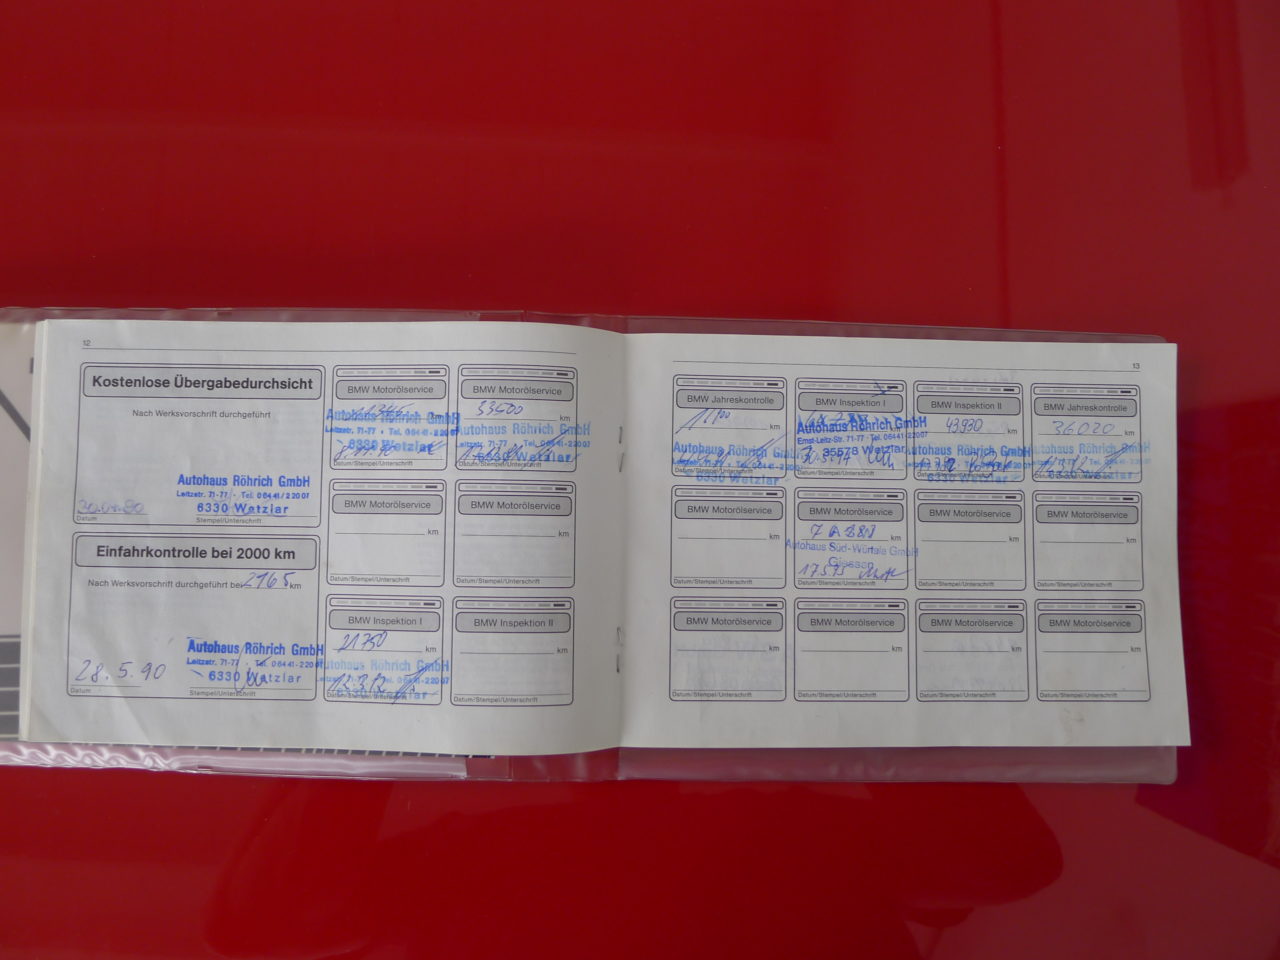 12
Kostenlose Übergabedurchsicht
Nach Werksvorschrift durchgeführt
Autohaus Röhrich GmbH
Leitzstr. 71-77 · Tel. 06441-22007
6330 Wetzlar
30.04.90
Datum
Stempel/Unterschrift
Einfahrkontrolle bei 2000 km
Nach Werksvorschrift durchgeführt bei 2165 km
Autohaus Röhrich GmbH
Leitzstr. 71-77 · Tel. 06441-22007
6330 Wetzlar
28.5.90
Datum
Stempel/Unterschrift
BMW Motorölservice
km
Autohaus Röhrich GmbH
Leitzstr. 71-77 · Tel. 06441-22007
6330 Wetzlar
Datum/Stempel/Unterschrift
BMW Motorölservice
33500 km
Autohaus Röhrich GmbH
Leitzstr. 71-77 · Tel. 06441-22007
6330 Wetzlar
Datum/Stempel/Unterschrift
BMW Motorölservice
km
Datum/Stempel/Unterschrift
BMW Motorölservice
km
Datum/Stempel/Unterschrift
BMW Inspektion I
21750 km
Autohaus Röhrich GmbH
Leitzstr. 71-77 · Tel. 06441-22007
6330 Wetzlar
Datum/Stempel/Unterschrift
BMW Inspektion II
km
Datum/Stempel/Unterschrift
13
BMW Jahreskontrolle
km
Autohaus Röhrich GmbH
Leitzstr. 71-77 · Tel. 06441-22007
6330 Wetzlar
Datum/Stempel/Unterschrift
BMW Inspektion I
Autohaus Röhrich GmbH
Ernst-Leitz-Str. 71-77 · Tel. 06441-22007
35578 Wetzlar
BMW Inspektion II
43930 km
Autohaus Röhrich GmbH
Leitzstr. 71-77 · Tel. 06441-22007
6330 Wetzlar
BMW Jahreskontrolle
36020 km
Autohaus Röhrich GmbH
Leitzstr. 71-77 · Tel. 06441-22007
6330 Wetzlar
BMW Motorölservice
km
Datum/Stempel/Unterschrift
BMW Motorölservice
km
Autohaus Süd-Würtale GmbH
Giessen
Datum/Stempel/Unterschrift
BMW Motorölservice
km
Datum/Stempel/Unterschrift
BMW Motorölservice
km
Datum/Stempel/Unterschrift
BMW Motorölservice
km
Datum/Stempel/Unterschrift
BMW Motorölservice
km
Datum/Stempel/Unterschrift
BMW Motorölservice
km
Datum/Stempel/Unterschrift
BMW Motorölservice
km
Datum/Stempel/Unterschrift